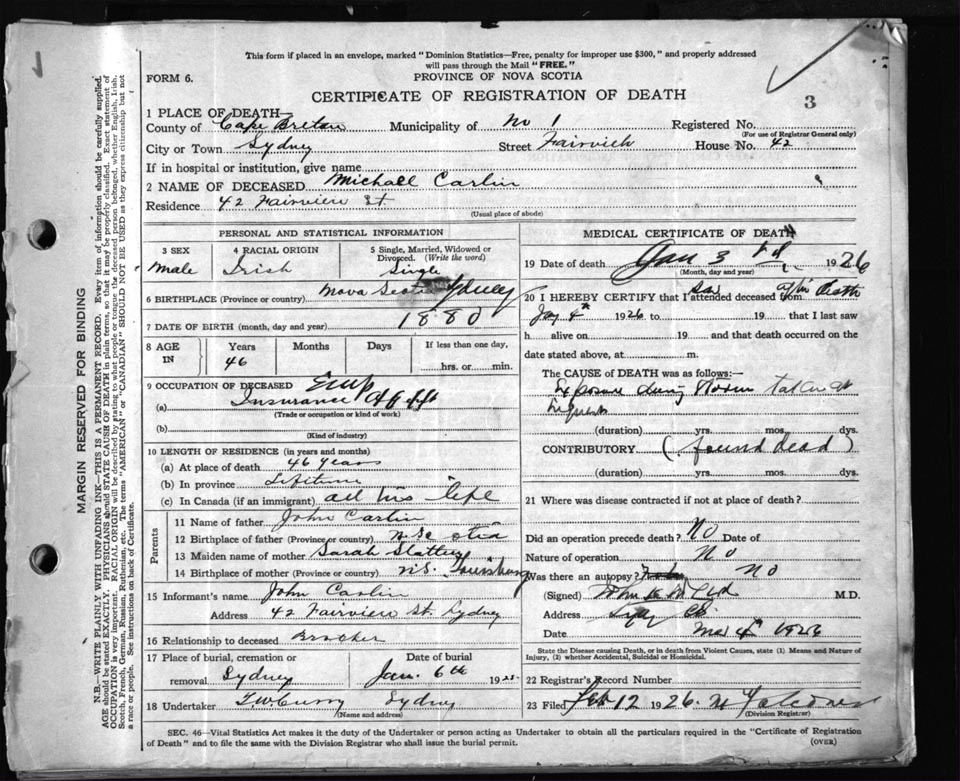 This form if placed in an envelope, marked "Dominion Statistics—Free, penalty for improper use $300," and properly addressed
will pass through the Mail "FREE."
FORM 6.
PROVINCE OF NOVA SCOTIA
CERTIFICATE OF REGISTRATION OF DEATH
3
1 PLACE OF DEATH—
County of Cape Breton Municipality of No 1 Registered No.
(For use of Registrar General only)
City or Town Sydney Street Fairview House No. 42
If in hospital or institution, give name
2 NAME OF DECEASED Michael Carlin
Residence 42 Fairview St
(Usual place of abode)
PERSONAL AND STATISTICAL INFORMATION
3 SEX 4 RACIAL ORIGIN 5 Single, Married, Widowed or Divorced. (Write the word)
Male Irish Single
6 BIRTHPLACE (Province or country) Nova Scotia Sydney
7 DATE OF BIRTH (month, day and year) 1880
8 AGE IN Years Months Days If less than one day,
46 hrs. or min.
9 OCCUPATION OF DECEASED
(a) Insurance
(Trade or occupation or kind of work)
(b)
(Kind of industry)
10 LENGTH OF RESIDENCE (in years and months)
(a) At place of death 46 years
(b) In province Lifetime
(c) In Canada (if an immigrant) all his life
Parents
11 Name of father John Carlin
12 Birthplace of father (Province or country) N. Scotia
13 Maiden name of mother Sarah Slattery
14 Birthplace of mother (Province or country) N.S. Louisburg
15 Informant's name John Carlin
Address 42 Fairview St. Sydney
16 Relationship to deceased Brother
17 Place of burial, cremation or removal Sydney Date of burial Jan. 6th 19
18 Undertaker Curry Sydney
(Name and address)
MEDICAL CERTIFICATE OF DEATH
19 Date of death Jan 3rd 1926
(Month, day and year)
20 I HEREBY CERTIFY that I attended deceased from after Death
Jay 4th 1926 to 19 that I last saw
h alive on 19 and that death occurred on the
date stated above, at m.
The CAUSE of DEATH was as follows:—
Exposure during Storm
(duration) yrs. mos. dys.
CONTRIBUTORY (found dead)
(duration) yrs. mos. dys.
21 Where was disease contracted if not at place of death?
Did an operation precede death? No Date of
Nature of operation No
Was there an autopsy? No
(Signed) John M.D.
Address
Date 4th 1926
State the Disease causing Death, or in death from Violent Causes, state (1) Means and Nature of
Injury, (2) whether Accidental, Suicidal or Homicidal.
22 Registrar's Record Number
23 Filed Feb 12 1926.
(Division Registrar)
SEC. 46—Vital Statistics Act makes it the duty of the Undertaker or person acting as Undertaker to obtain all the particulars required in the "Certificate of Registration
of Death" and to file the same with the Division Registrar who shall issue the burial permit.
(OVER)
MARGIN RESERVED FOR BINDING
N.B.—WRITE PLAINLY WITH UNFADING INK—THIS IS A PERMANENT RECORD. Every item of information should be carefully supplied.
AGE should be stated EXACTLY. PHYSICIANS should STATE CAUSE OF DEATH in plain terms, so that it may be properly classified. Exact statement of
OCCUPATION is very important. RACIAL ORIGIN will be described by stating to what people or tongue the deceased person belonged, whether English, Irish,
Scotch, French, German, Russian, Ruthenian, etc. The terms "AMERICAN" or "CANADIAN" SHOULD NOT BE USED as they express citizenship but not
a race or people. See instructions on back of Certificate.